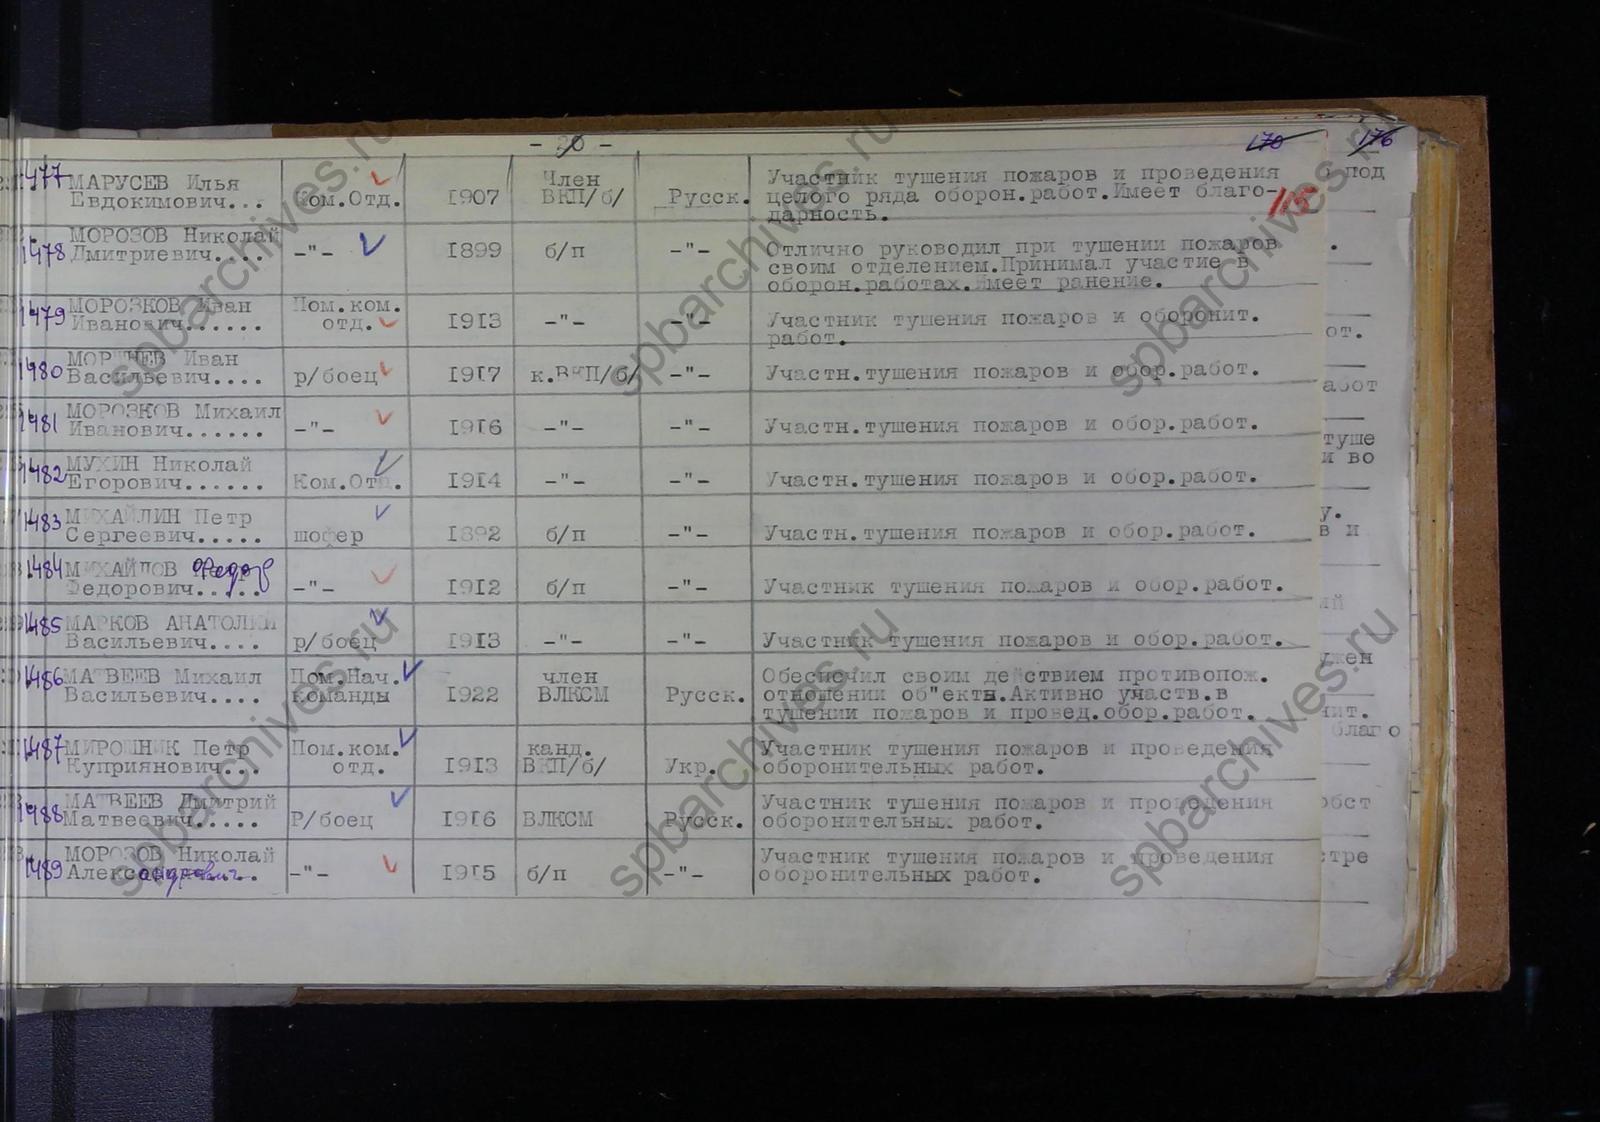 - 30 -
170
176
115
1477 МАРУСЕВ Илья Евдокимович... Ком.Отд. 1907 Член ВКП/б/ Русск. Участник тушения пожаров и проведения
целого ряда оборон.работ.Имеет благо-
дарность.
1478 МОРОЗОВ Николай Дмитриевич.... -"- 1899 б/п -"- Отлично руководил при тушении пожаров
своим отделением.Принимал участие в
оборон.работах.Имеет ранение.
1479 МОРОЗКОВ Иван Иванович...... Пом.ком. отд. 1913 -"- -"- Участник тушения пожаров и оборонит.
работ.
1480 Иван Васильевич.... р/боец 1917 к.ВКП/б/ -"- Участн.тушения пожаров и обор.работ.
1481 МОРОЗКОВ Михаил Иванович...... -"- 1916 -"- -"- Участн.тушения пожаров и обор.работ.
1482 МУХИН Николай Егорович...... Ком.Отд. 1914 -"- -"- Участн.тушения пожаров и обор.работ.
1483 МИХАЙЛИН Петр Сергеевич..... шофер 1892 б/п -"- Участн.тушения пожаров и обор.работ.
1484 МИХАЙЛОВ Федор Федорович..... -"- 1912 б/п -"- Участник тушения пожаров и обор.работ.
1485 МАРКОВ АНАТОЛИЙ Васильевич.... р/боец 1913 -"- -"- Участник тушения пожаров и обор.работ.
1486 МАТВЕЕв Михаил Васильевич.... Пом.Нач. команды 1922 член ВЛКСМ Русск. Обеспечил своим действием противопож.
отношении об"екты.Активно участв.в
тушении пожаров и провед.обор.работ.
1487 МИРОШНИК Петр Куприянович... Пом.ком. отд. 1913 канд. ВКП/б/ Укр. Участник тушения пожаров и проведения
оборонительных работ.
1488 МАТВЕЕВ Дмитрий Матвеевич..... Р/боец 1916 ВЛКСМ Русск. Участник тушения пожаров и проведения
оборонительных работ.
1489 МОРОЗОВ Николай Александрович. -"- 1915 б/п -"- Участник тушения пожаров и проведения
оборонительных работ.
под
от.
абот
туше
и во
у.
в и
ий
ужен
нит.
благо
обст
стре
spbarchives.ru
spbarchives.ru
spbarchives.ru
spbarchives.ru
spbarchives.ru
spbarchives.ru